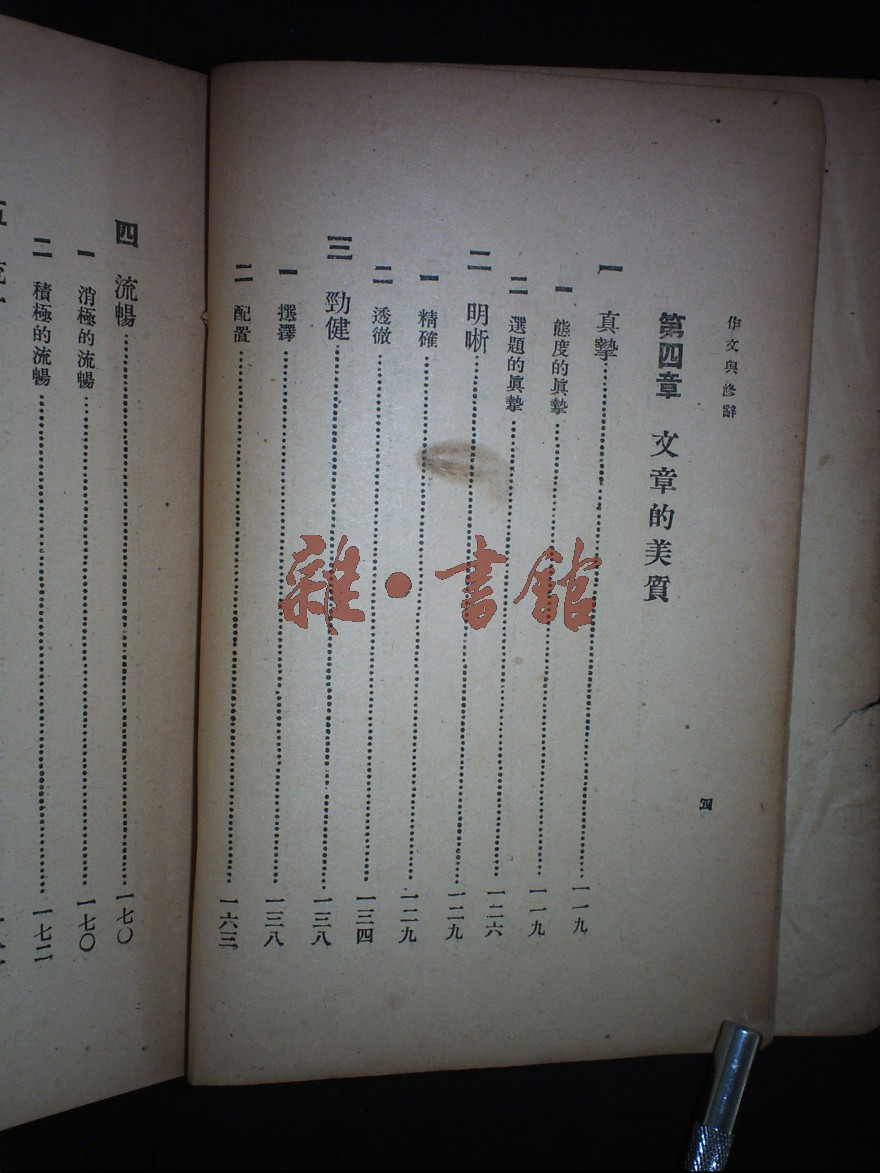 作文與修辭
四
第四章 文章的美質
一 真摯 一一九
一 態度的眞摯 一一九
二 選題的眞摯 一二六
二 明晰 一二九
一 精確 一二九
二 透徹 一三四
三 勁健 一三八
一 選擇 一三八
二 配置 一六三
四 流暢 一七〇
一 消極的流暢 一七〇
二 積極的流暢 一七二
雜·書館